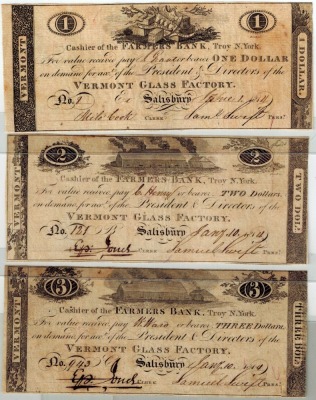 1 1
VERMONT
1 DOLLAR
Cashier of the FARMERS BANK, Troy N.York.
For value receiv'd pay or bearer ONE DOLLAR
on demand for acct. of the President & Directors of the
VERMONT GLASS FACTORY.
No. Salisbury
CLERK Saml Swift TREAS.
2 2
VERMONT
TWO DOL.
Cashier of the FARMERS BANK, Troy N.York.
For value receiv'd pay C Henry or bearer TWO Dollars,
on demand for acct. of the President & Directors of the
VERMONT GLASS FACTORY.
No. 181 Salisbury Jany 10, 1814
CLERK Samuel Swift TREAS.
3 3
VERMONT
THREE DOLS.
Cashier of the FARMERS BANK, Troy N.York.
For value receiv'd pay or bearer THREE Dollars.
on demand for acct. of the President & Directors of the
VERMONT GLASS FACTORY.
No. 943 Salisbury Jany 10, 1814
CLERK Samuel Swift TREAS.